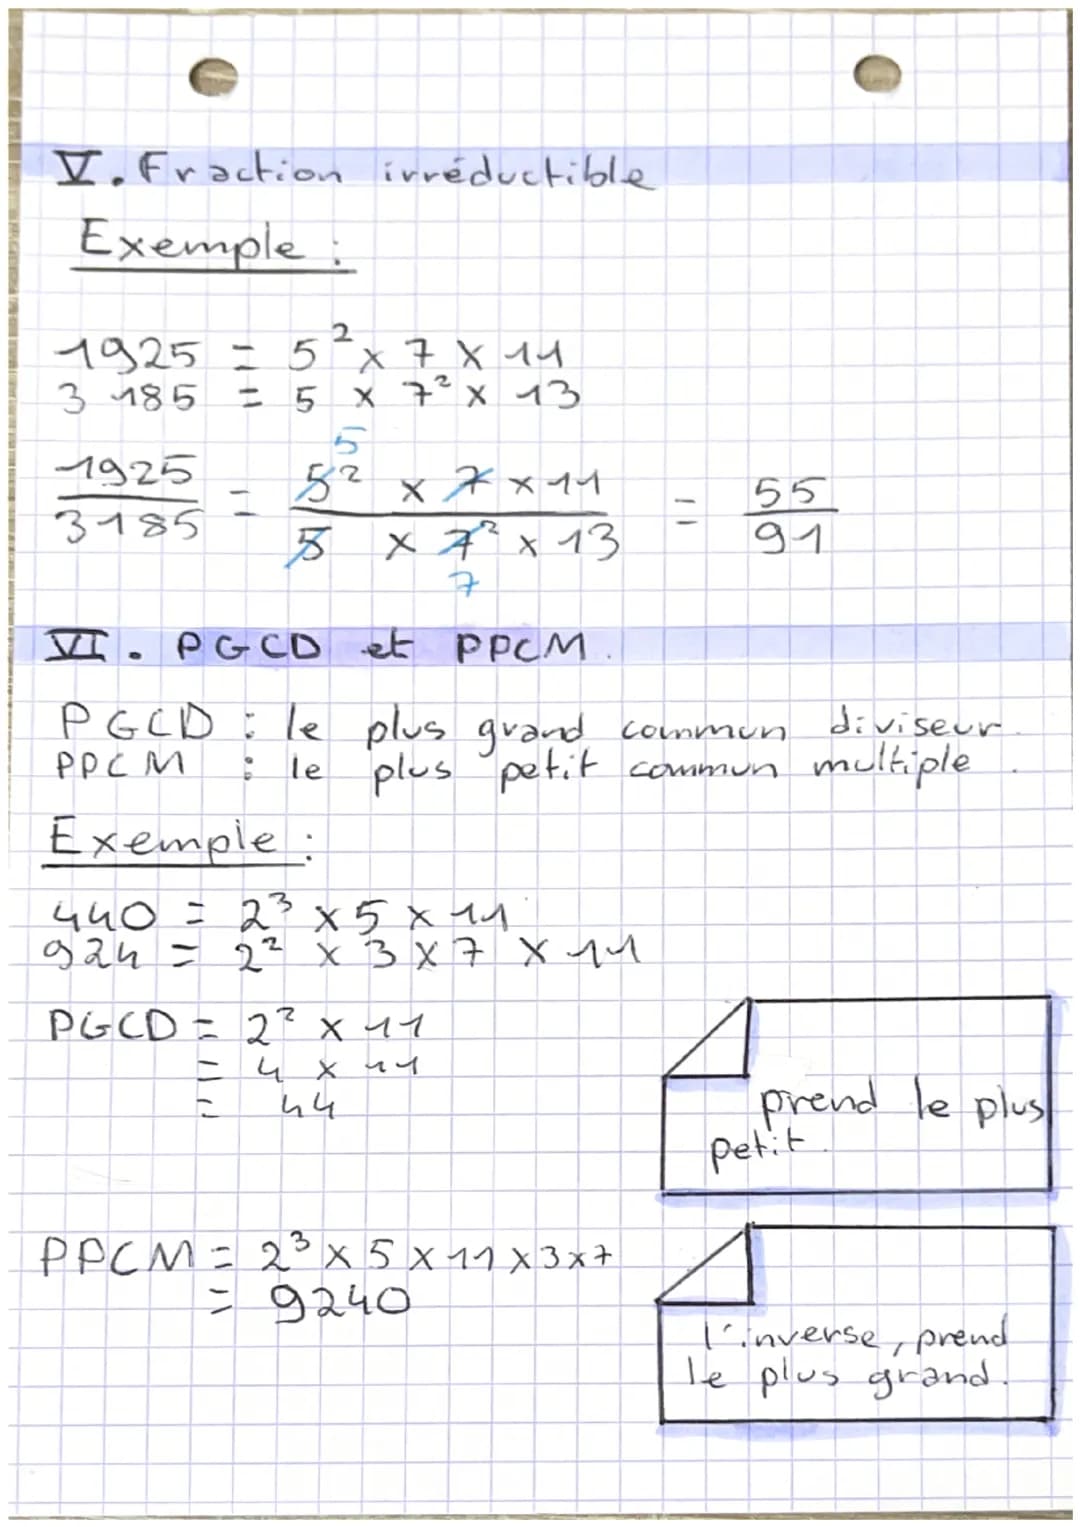 V. Fraction irréductible
Exemple :
1925 = 5² x 7 x 11
3 185 = 5 x 7² x 13
5
1925 / 3185 = 5² x 7 x 11 / 5 x 7² x 13 = 55 / 91
7
VI. PGCD et PPCM.
PGCD : le plus grand commun diviseur.
PPCM : le plus petit commun multiple.
Exemple :
440 = 2³ x 5 x 11
924 = 2² x 3 x 7 x 11
PGCD = 2² x 11
= 4 x 11
= 44
prend le plus
petit.
PPCM = 2³ x 5 x 11 x 3 x 7
= 9240
l'inverse, prend
le plus grand.